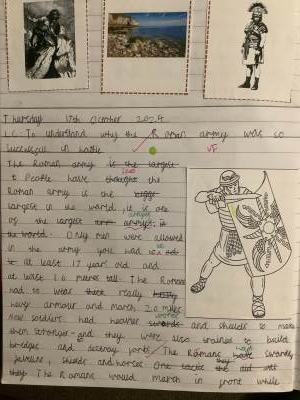 Thursday 17th October 2024
L.C. To understand why the Roman army was so
successful in battle. VF
The Roman army is the largest
less
t People have thought the
Roman army is the bigge
largest in the world, it is one
armys
of the largest arm armys. in
the world. Only men were allowed
in the army you had
to at least 17 year old and
at least 1.6 metres tall. The Roman
had to wear really heavy
heavy armour and march 20 miles
New soldiers had heavier swords and shields to make
them stronger and they were also trained to build
bridges and destroy forts. The Romans have swords,
javelins, shields and horses. One tactic the did was
they The Romans would march in front while